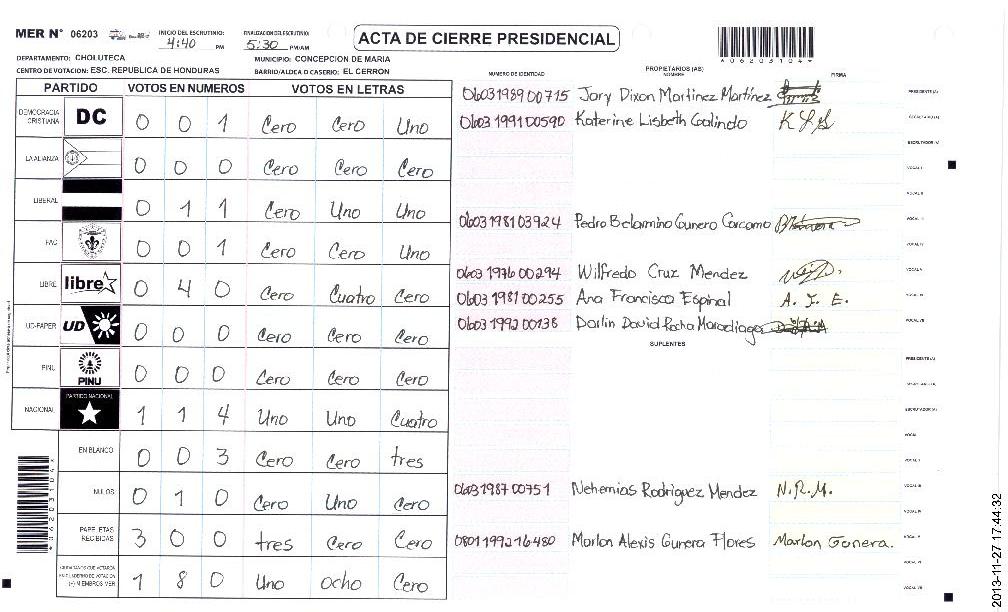 MER N° 06203
INICIO DEL ESCRUTINIO: 4:40 PM
FINALIZACION DEL ESCRUTINIO: 5:30 PM/AM
ACTA DE CIERRE PRESIDENCIAL
*06203104*
DEPARTAMENTO: CHOLUTECA
MUNICIPIO: CONCEPCION DE MARIA
CENTRO DE VOTACION: ESC. REPUBLICA DE HONDURAS
BARRIO/ALDEA O CASERIO: EL CERRON
PARTIDO VOTOS EN NUMEROS VOTOS EN LETRAS
DEMOCRACIA CRISTIANA DC 0 0 1 Cero Cero Uno
LA ALIANZA 0 0 0 Cero Cero Cero
LIBERAL 0 1 1 Cero Uno Uno
PAC 0 0 1 Cero Cero Uno
LIBRE libre 0 4 0 Cero Cuatro Cero
UD-FAPER UD 0 0 0 Cero Cero Cero
PINU PINU 0 0 0 Cero Cero Cero
NACIONAL PARTIDO NACIONAL 1 1 4 Uno Uno Cuatro
EN BLANCO 0 0 3 Cero Cero tres
NULOS 0 1 0 Cero Uno Cero
PAPELETAS RECIBIDAS 3 0 0 tres Cero Cero
CIUDADANOS QUE VOTARON EN CUADERNO DE VOTACION (+) MIEMBROS MER 1 8 0 Uno ocho Cero
*06203104*
NUMERO DE IDENTIDAD PROPIETARIOS (AS) NOMBRE FIRMA
0603198900715 Jory Dixon Martinez Martinez PRESIDENTE (A)
0603199100590 Katerine Lisbeth Galindo KLG SECRETARIO (A)
ESCRUTADOR (A)
VOCAL I
VOCAL II
0603198103924 Pedro Belarmino Gunera Carcamo VOCAL III
VOCAL IV
0603197600294 Wilfredo Cruz Mendez VOCAL V
0603198100255 Ana Francisco Espinal A. F. E. VOCAL VI
0603199200138 Darlin David Rocha Maradiaga VOCAL VII
SUPLENTES
PRESIDENTE (A)
SECRETARIO (A)
ESCRUTADOR (A)
VOCAL I
VOCAL II
0603198700751 Nehemias Rodriguez Mendez N.R.M. VOCAL III
VOCAL IV
0801199216480 Marlon Alexis Gunera Flores Marlon Gunera. VOCAL V
VOCAL VI
VOCAL VII
2013-11-27 17:44:32